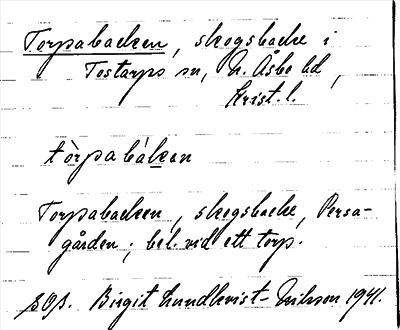 Torpabacken, skogsbacke i
Tostarps sn, N. Åsbo hd,
Krist. l.
tòrpabákan
Torpabacken, skogsbacke, Persa-
gården; bel. vid ett torp.
Birgit Lundkvist-Nilsson 1941.